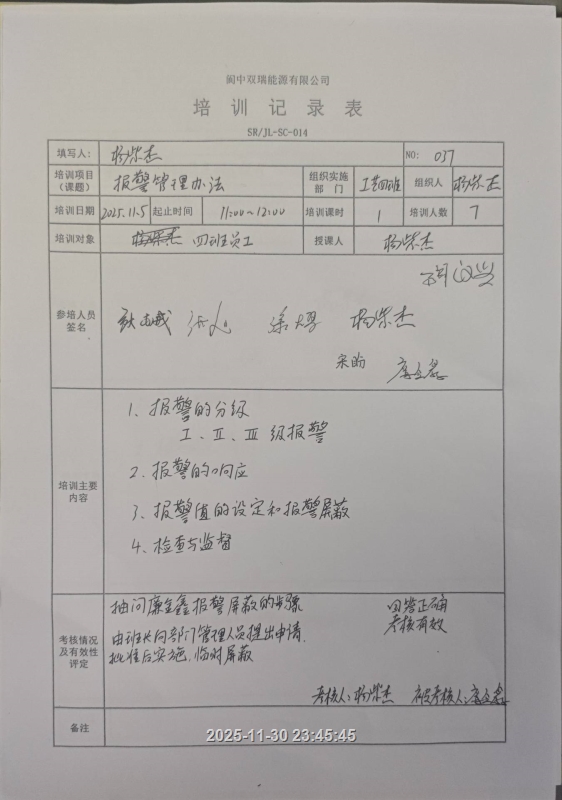 阆中双瑞能源有限公司
培训记录表
SR/JL-SC-014
填写人: 杨紫杰 NO: 037
培训项目(课题) 报警管理办法 组织实施部门 工艺四班 组织人 杨紫杰
培训日期 2025.11.5 起止时间 11:00~12:00 培训课时 1 培训人数 7
培训对象 四班员工 授课人 杨紫杰
参培人员签名
杨紫杰
宋盼
培训主要内容
1、报警的分级
I、II、III 级报警
2、报警的响应
3、报警值的设定和报警屏蔽
4、检查与监督
考核情况及有效性评定
抽问廉金鑫报警屏蔽的步骤 回答正确
考核有效
由班长向部门管理人员提出申请,
批准后实施,临时屏蔽
考核人:杨紫杰 被考核人:
备注
2025-11-30 23:45:45